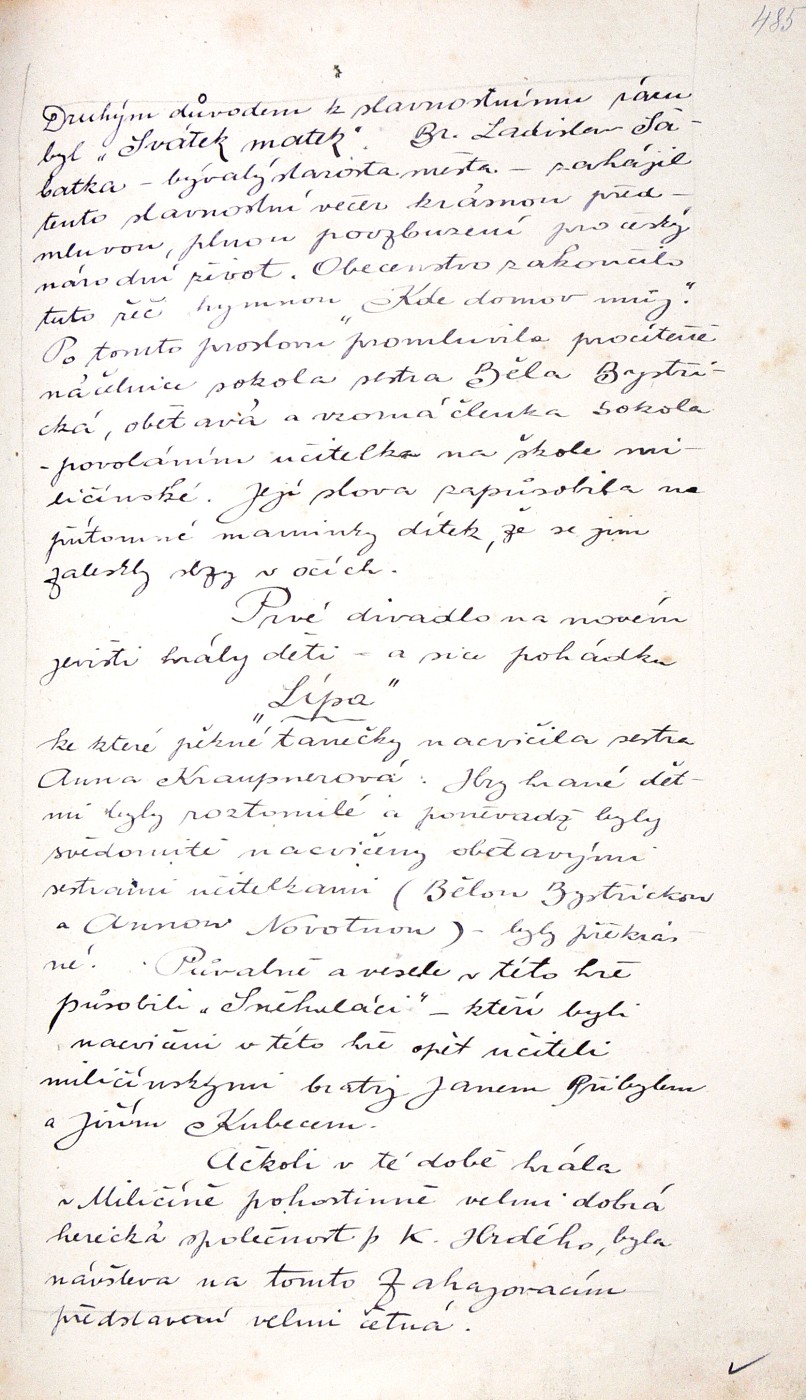 485
Druhým důvodem k slavnostnímu rázu
byl „Svátek matek“. Br. Ladislav Sa-
batka - bývalý starosta města - zahájil
tento slavnostní večer krásnou před-
mluvou, plnou povzbuzení pro český
národní život. Obecenstvo zakončilo
tuto řeč hymnou „Kde domov můj“.
Po tomto proslovu promluvila procítěně
náčelnice sokola sestra Běla Bystři-
cká, obětavá a vzorná členka Sokola
- povoláním učitelka na škole mi-
ličínské. Její slova zapůsobila na
přítomné maminky dítek, že se jim
zaleskly slzy v očích.
Prvé divadlo na novém
jevišti hrály děti - a sice pohádku
„Lípa“
ke které pěkné tanečky nacvičila sestra
Anna Kraupnerová. Hry hrané dět-
mi byly roztomilé a poněvadž byly
svědomitě nacvičeny obětavými
sestrami učitelkami (Bělou Bystřickou
a Annou Novotnou) - byly překrás-
né. Půvabně a vesele v této hře
působili „Sněhuláci“ - kteří byli
nacvičeni v této hře opět učiteli
miličínskými bratry Janem Přibylem
a Jiřím Kubecem.
Ačkoli v té době hrála
v Miličíně pohostinně velmi dobrá
herecká společnost p K. Hrdého, byla
návštěva na tomto Zahajovacím
představení velmi četná.